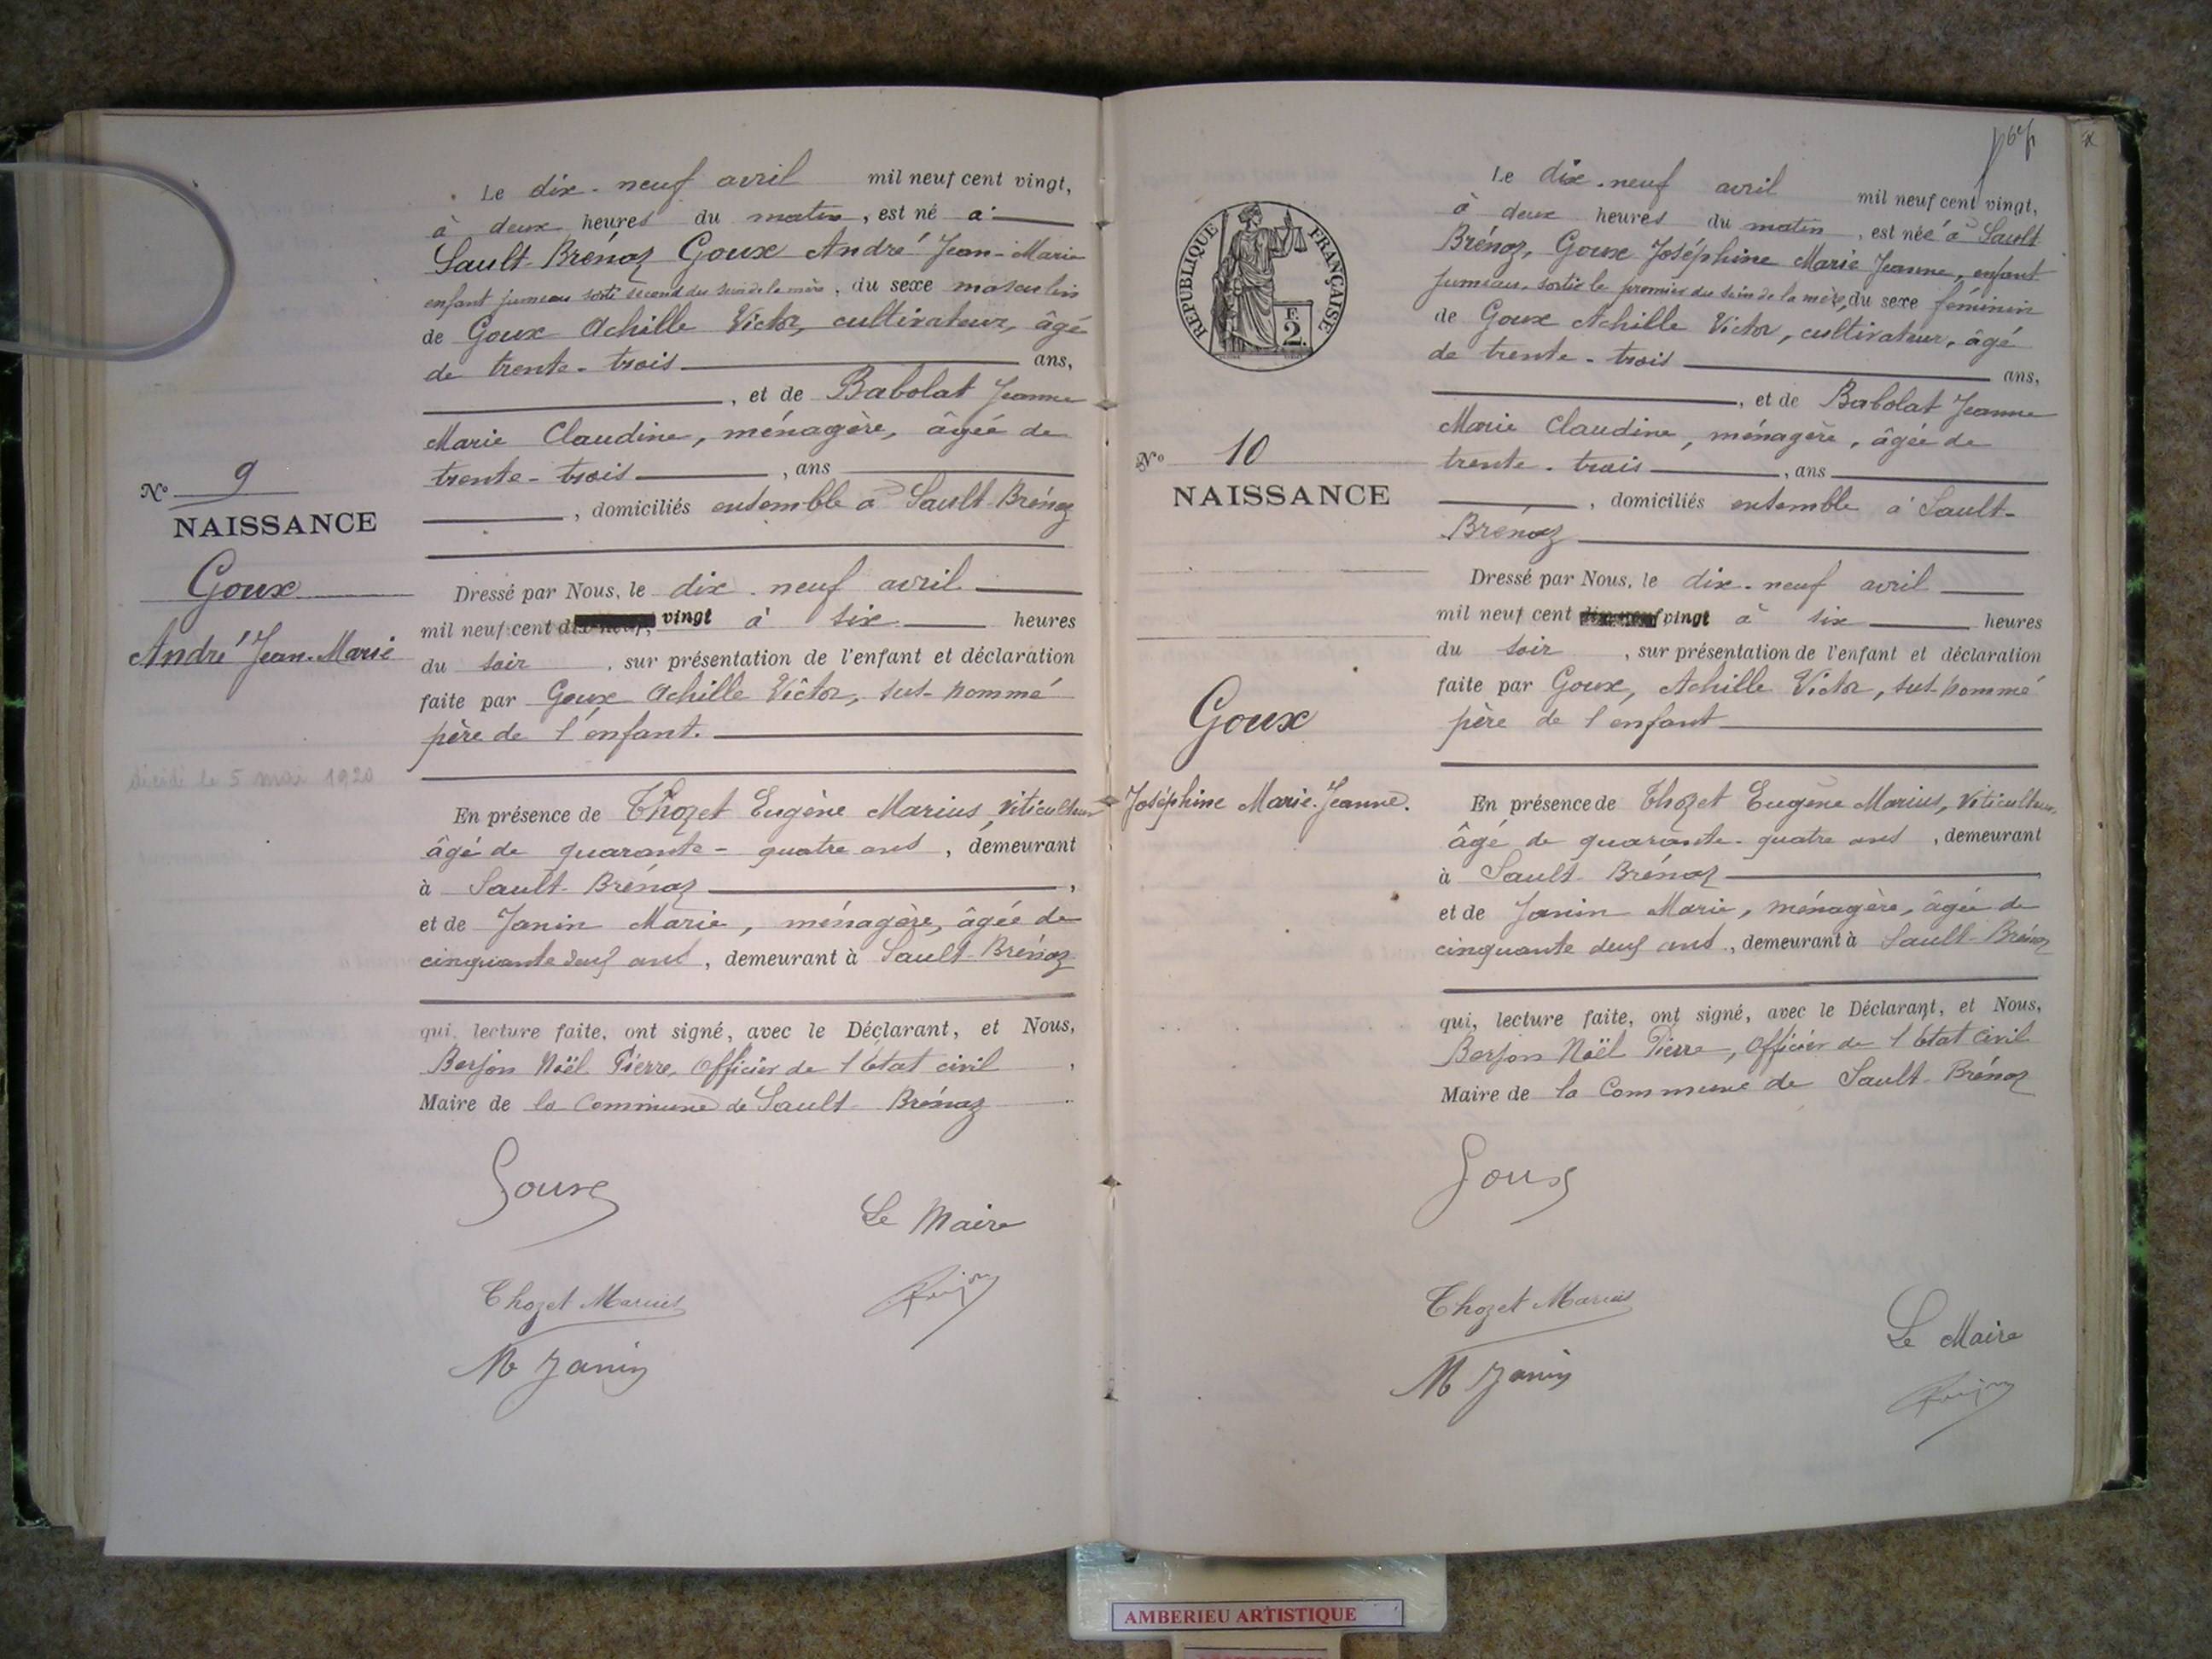 Le dix-neuf avril mil neuf cent vingt,
à deux heures du matin, est né à
Sault-Brénaz Goux André Jean-Marie
enfant jumeau sorti second du sein de la mère, du sexe masculin
de Goux Achille Victor, cultivateur, âgé
de trente-trois ans,
, et de Babolat Jeanne
Marie Claudine, ménagère, âgée de
trente-trois, ans
, domiciliés ensemble à Sault-Brénaz
N° 9
NAISSANCE
Goux
André Jean-Marie
décédé le 5 mai 1920
Dressé par Nous, le dix-neuf avril
mil neuf cent dix-neuf, vingt à six heures
du soir, sur présentation de l'enfant et déclaration
faite par Goux Achille Victor, sus-nommé
père de l'enfant.
En présence de Thozet Eugène Marius, Viticulteur
âgé de quarante-quatre ans, demeurant
à Sault-Brénaz,
et de Janin Marie, ménagère, âgée de
cinquante deuf ans, demeurant à Sault-Brénaz
qui, lecture faite, ont signé, avec le Déclarant, et Nous,
Berjon Noël Pierre, Officier de l'état civil,
Maire de la Commune de Sault-Brénaz
Goux
Le Maire
Thozet Marius
M Janin
RÉPUBLIQUE FRANÇAISE
F.
2.
N° 10
NAISSANCE
Goux
Joséphine Marie-Jeanne.
Le dix-neuf avril mil neuf cent vingt,
à deux heures du matin, est née à Sault
Brénaz, Goux Joséphine Marie Jeanne, enfant
jumeau, sortie le premier du sein de la mère, du sexe féminin
de Goux Achille Victor, cultivateur, âgé
de trente-trois ans,
, et de Babolat Jeanne
Marie Claudine, ménagère, âgée de
trente-trois, ans
, domiciliés ensemble à Sault-
Brénaz
Dressé par Nous, le dix-neuf avril
mil neuf cent dix-neuf vingt à six heures
du soir, sur présentation de l'enfant et déclaration
faite par Goux, Achille Victor, sus-nommé
père de l'enfant
En présence de Thozet Eugène Marius, Viticulteur,
âgé de quarante-quatre ans, demeurant
à Sault-Brénaz,
et de Janin Marie, ménagère, âgée de
cinquante deuf ans, demeurant à Sault-Brénaz
qui, lecture faite, ont signé, avec le Déclarant, et Nous,
Berjon Noël Pierre, Officier de l'état civil
Maire de la Commune de Sault-Brénaz
Goux
Thozet Marius
Le Maire
M Janin
AMBERIEU ARTISTIQUE